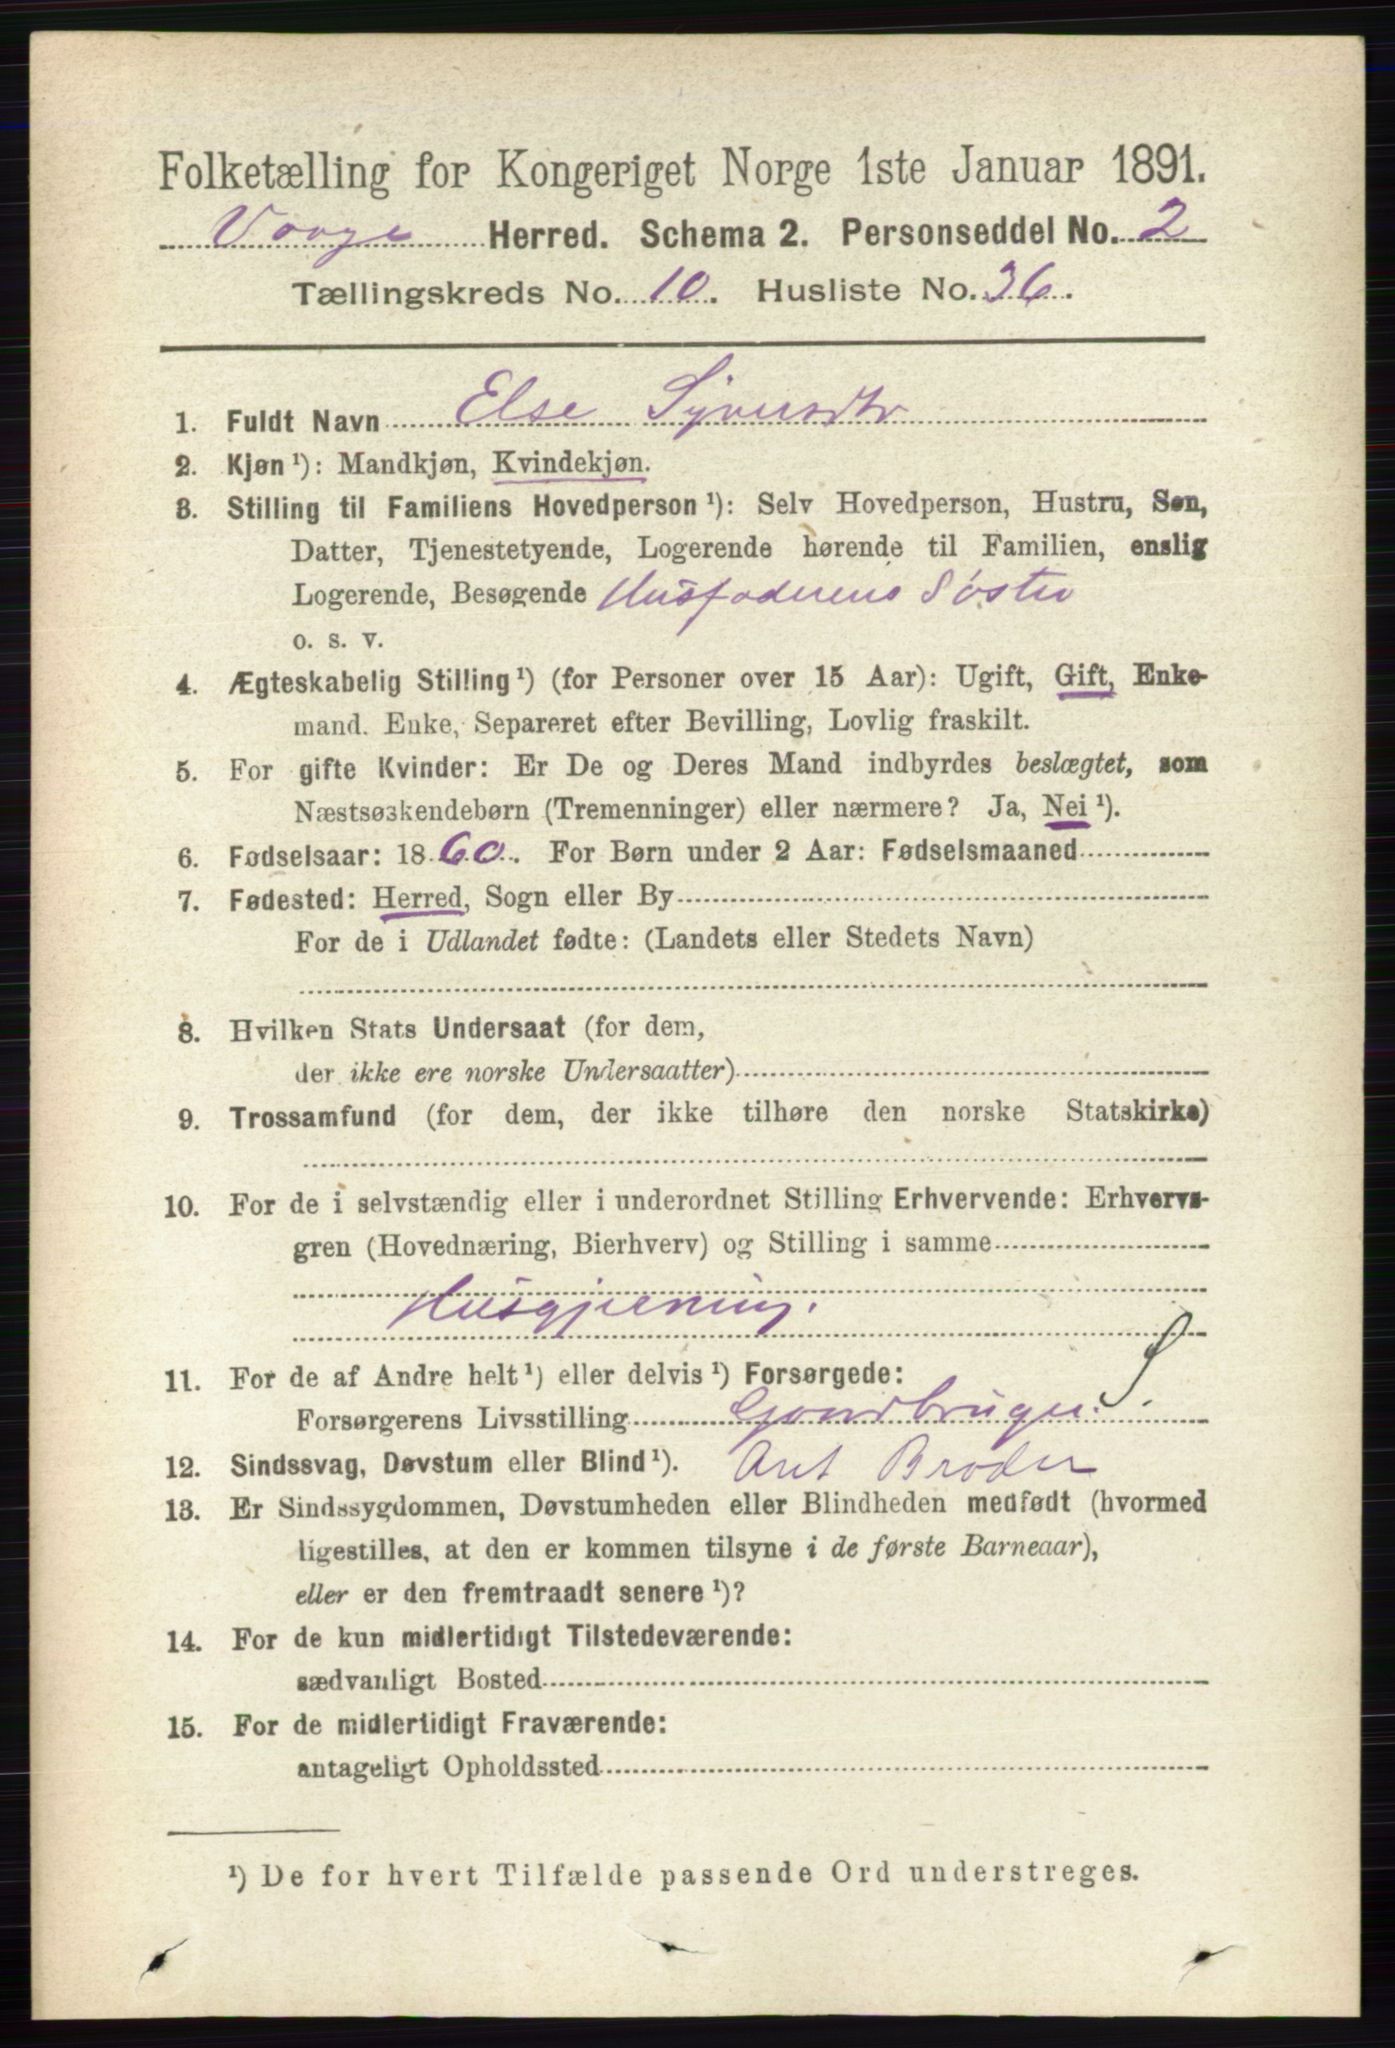 Folketælling for Kongeriget Norge 1ste Januar 1891.
Vaage Herred. Schema 2. Personseddel No. 2
Tællingskreds No. 10. Husliste No. 36.
1. Fuldt Navn Else Syversdtr
2. Kjøn ¹): Mandkjøn, Kvindekjøn.
3. Stilling til Familiens Hovedperson ¹): Selv Hovedperson, Hustru, Søn,
Datter, Tjenestetyende, Logerende hørende til Familien, enslig
Logerende, Besøgende Husfaderens Søster
o. s. v.
4. Ægteskabelig Stilling ¹) (for Personer over 15 Aar): Ugift, Gift, Enke-
mand. Enke, Separeret efter Bevilling, Lovlig fraskilt.
5. For gifte Kvinder: Er De og Deres Mand indbyrdes beslægtet, som
Næstsøskendebørn (Tremenninger) eller nærmere? Ja, Nei ¹).
6. Fødselsaar: 1860. For Børn under 2 Aar: Fødselsmaaned
7. Fødested: Herred, Sogn eller By
For de i Udlandet fødte: (Landets eller Stedets Navn)
8. Hvilken Stats Undersaat (for dem,
der ikke ere norske Undersaatter)
9. Trossamfund (for dem, der ikke tilhøre den norske Statskirke)
10. For de i selvstændig eller i underordnet Stilling Erhvervende: Erhvervs-
gren (Hovednæring, Bierhverv) og Stilling i samme
Husgjerning.
11. For de af Andre helt ¹) eller delvis ¹) Forsørgede:
Forsørgerens Livsstilling Gaardbruger.
12. Sindssvag, Døvstum eller Blind ¹). Broder
13. Er Sindssygdommen, Døvstumheden eller Blindheden medfødt (hvormed
ligestilles, at den er kommen tilsyne i de første Barneaar),
eller er den fremtraadt senere ¹)?
14. For de kun midlertidigt Tilstedeværende:
sædvanligt Bosted
15. For de midlertidigt Fraværende:
antageligt Opholdssted
¹) De for hvert Tilfælde passende Ord understreges.